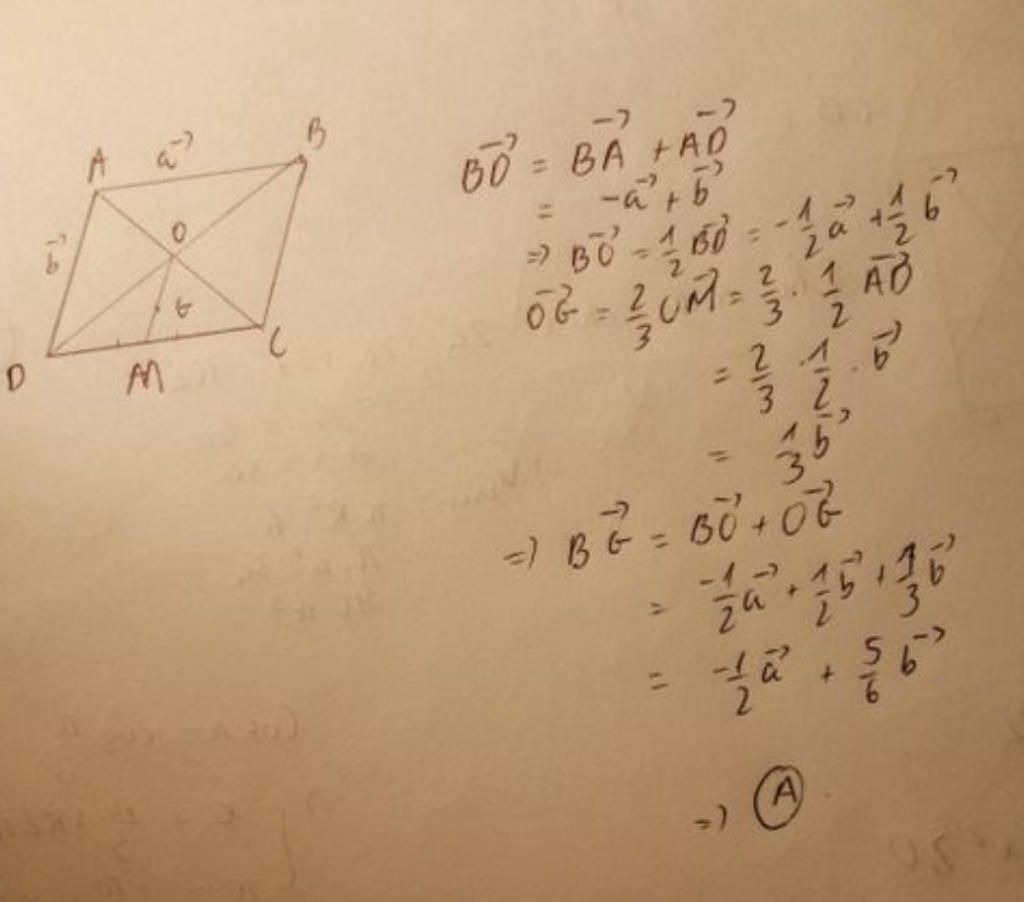 A a⃗ B
b⃗ O
G
D M C
BD⃗ = BA⃗ + AD⃗
= -a⃗ + b⃗
=> BO⃗ = 1/2 BD⃗ = -1/2 a⃗ + 1/2 b⃗
OG⃗ = 2/3 OM⃗ = 2/3 . 1/2 AD⃗
= 2/3 . 1/2 . b⃗
= 1/3 b⃗
=> BG⃗ = BO⃗ + OG⃗
= -1/2 a⃗ + 1/2 b⃗ + 1/3 b⃗
= -1/2 a⃗ + 5/6 b⃗
=> A